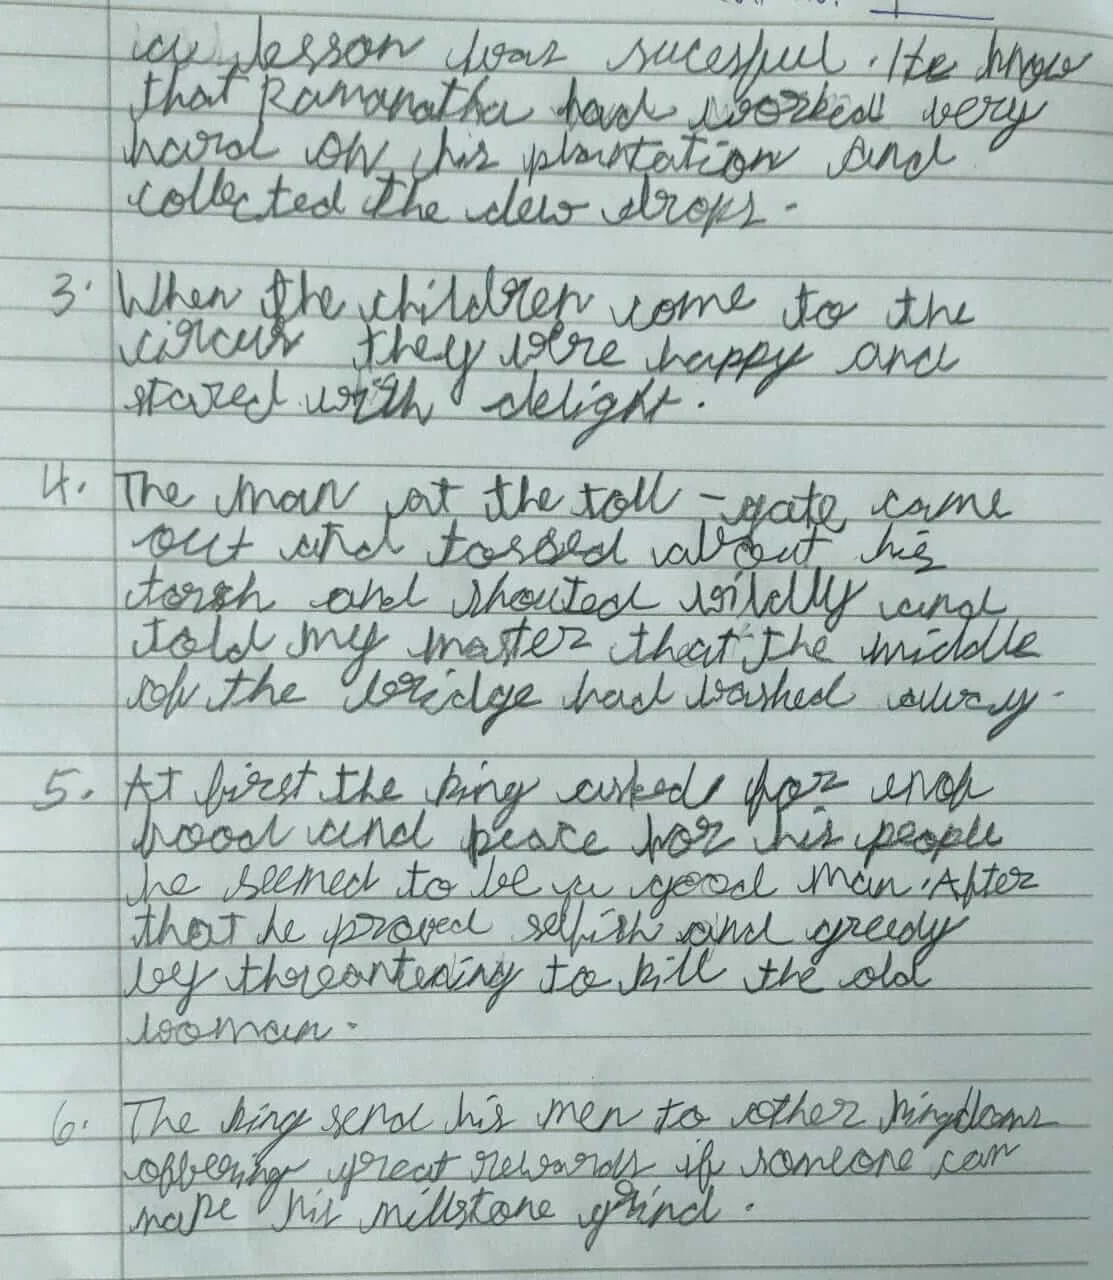 lesson was sucessful. He know
that Ramanatha had worked very
hard on his plantation and
collected the dew drops.
3. When the children come to the
circus they were happy and
stared with delight.
4. The man at the toll-gate came
out and tossed about his
torsh and shouted wildly and
told my master that the middle
of the bridge had washed away.
5. At first the king asked for
food and peace for his people
he seemed to be a good man. After
that he proved selfish and greedy
by threantening to kill the old
woman.
6. The king send his men to other kingdoms
offering great rewards if someone can
make his millstone grind.